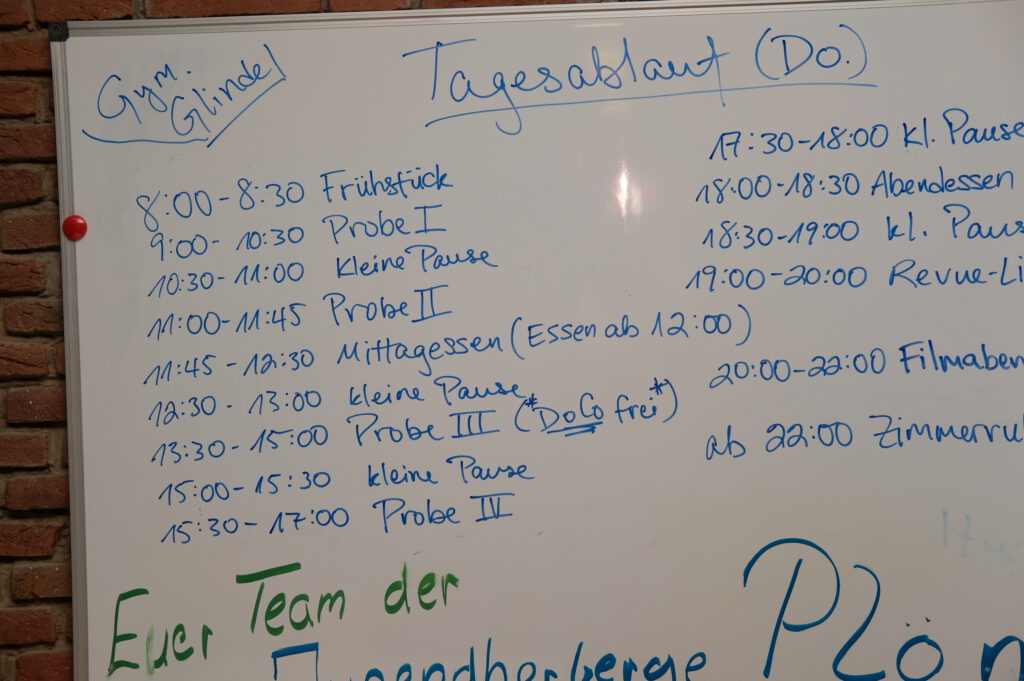 Gym.
Glinde
Tagesablauf (Do.)
8:00-8:30 Frühstück
9:00-10:30 Probe I
10:30-11:00 Kleine Pause
11:00-11:45 Probe II
11:45-12:30 Mittagessen (Essen ab 12:00)
12:30-13:00 kleine Pause
13:30-15:00 Probe III (*DoCo frei*)
15:00-15:30 kleine Pause
15:30-17:00 Probe IV
17:30-18:00 kl. Pause
18:00-18:30 Abendessen
18:30-19:00 kl. Paus
19:00-20:00 Revue-Li
20:00-22:00 Filmaben
ab 22:00 Zimmerru
Euer Team der
Jugendherberge Plön